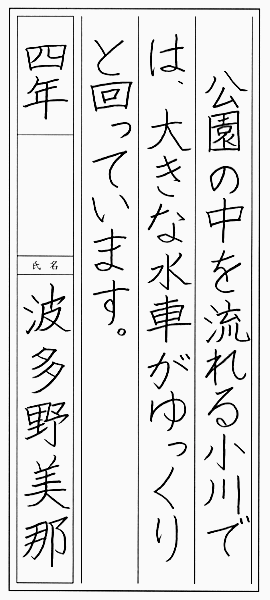 公園の中を流れる小川で
は、大きな水車がゆっくり
と回っています。
四年
氏名
波多野美那